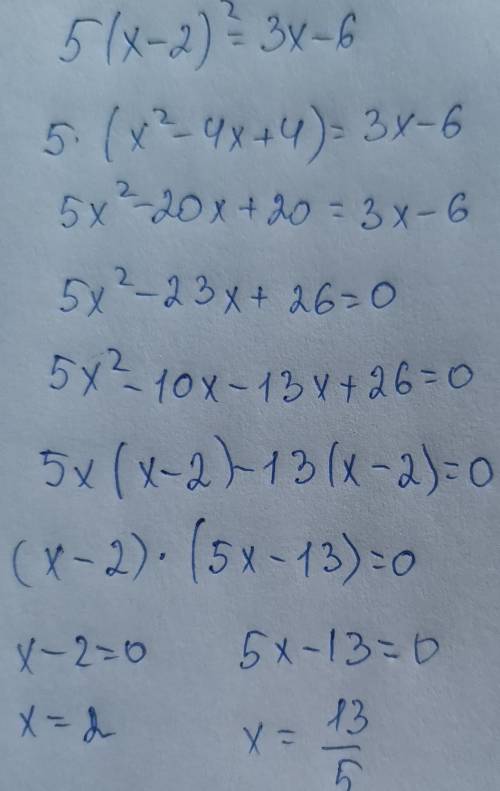 5(x-2)²=3x-6
5·(x²-4x+4)=3x-6
5x²-20x+20=3x-6
5x²-23x+26=0
5x²-10x-13x+26=0
5x(x-2)-13(x-2)=0
(x-2)·(5x-13)=0
x-2=0 5x-13=0
x=2 x=13/5